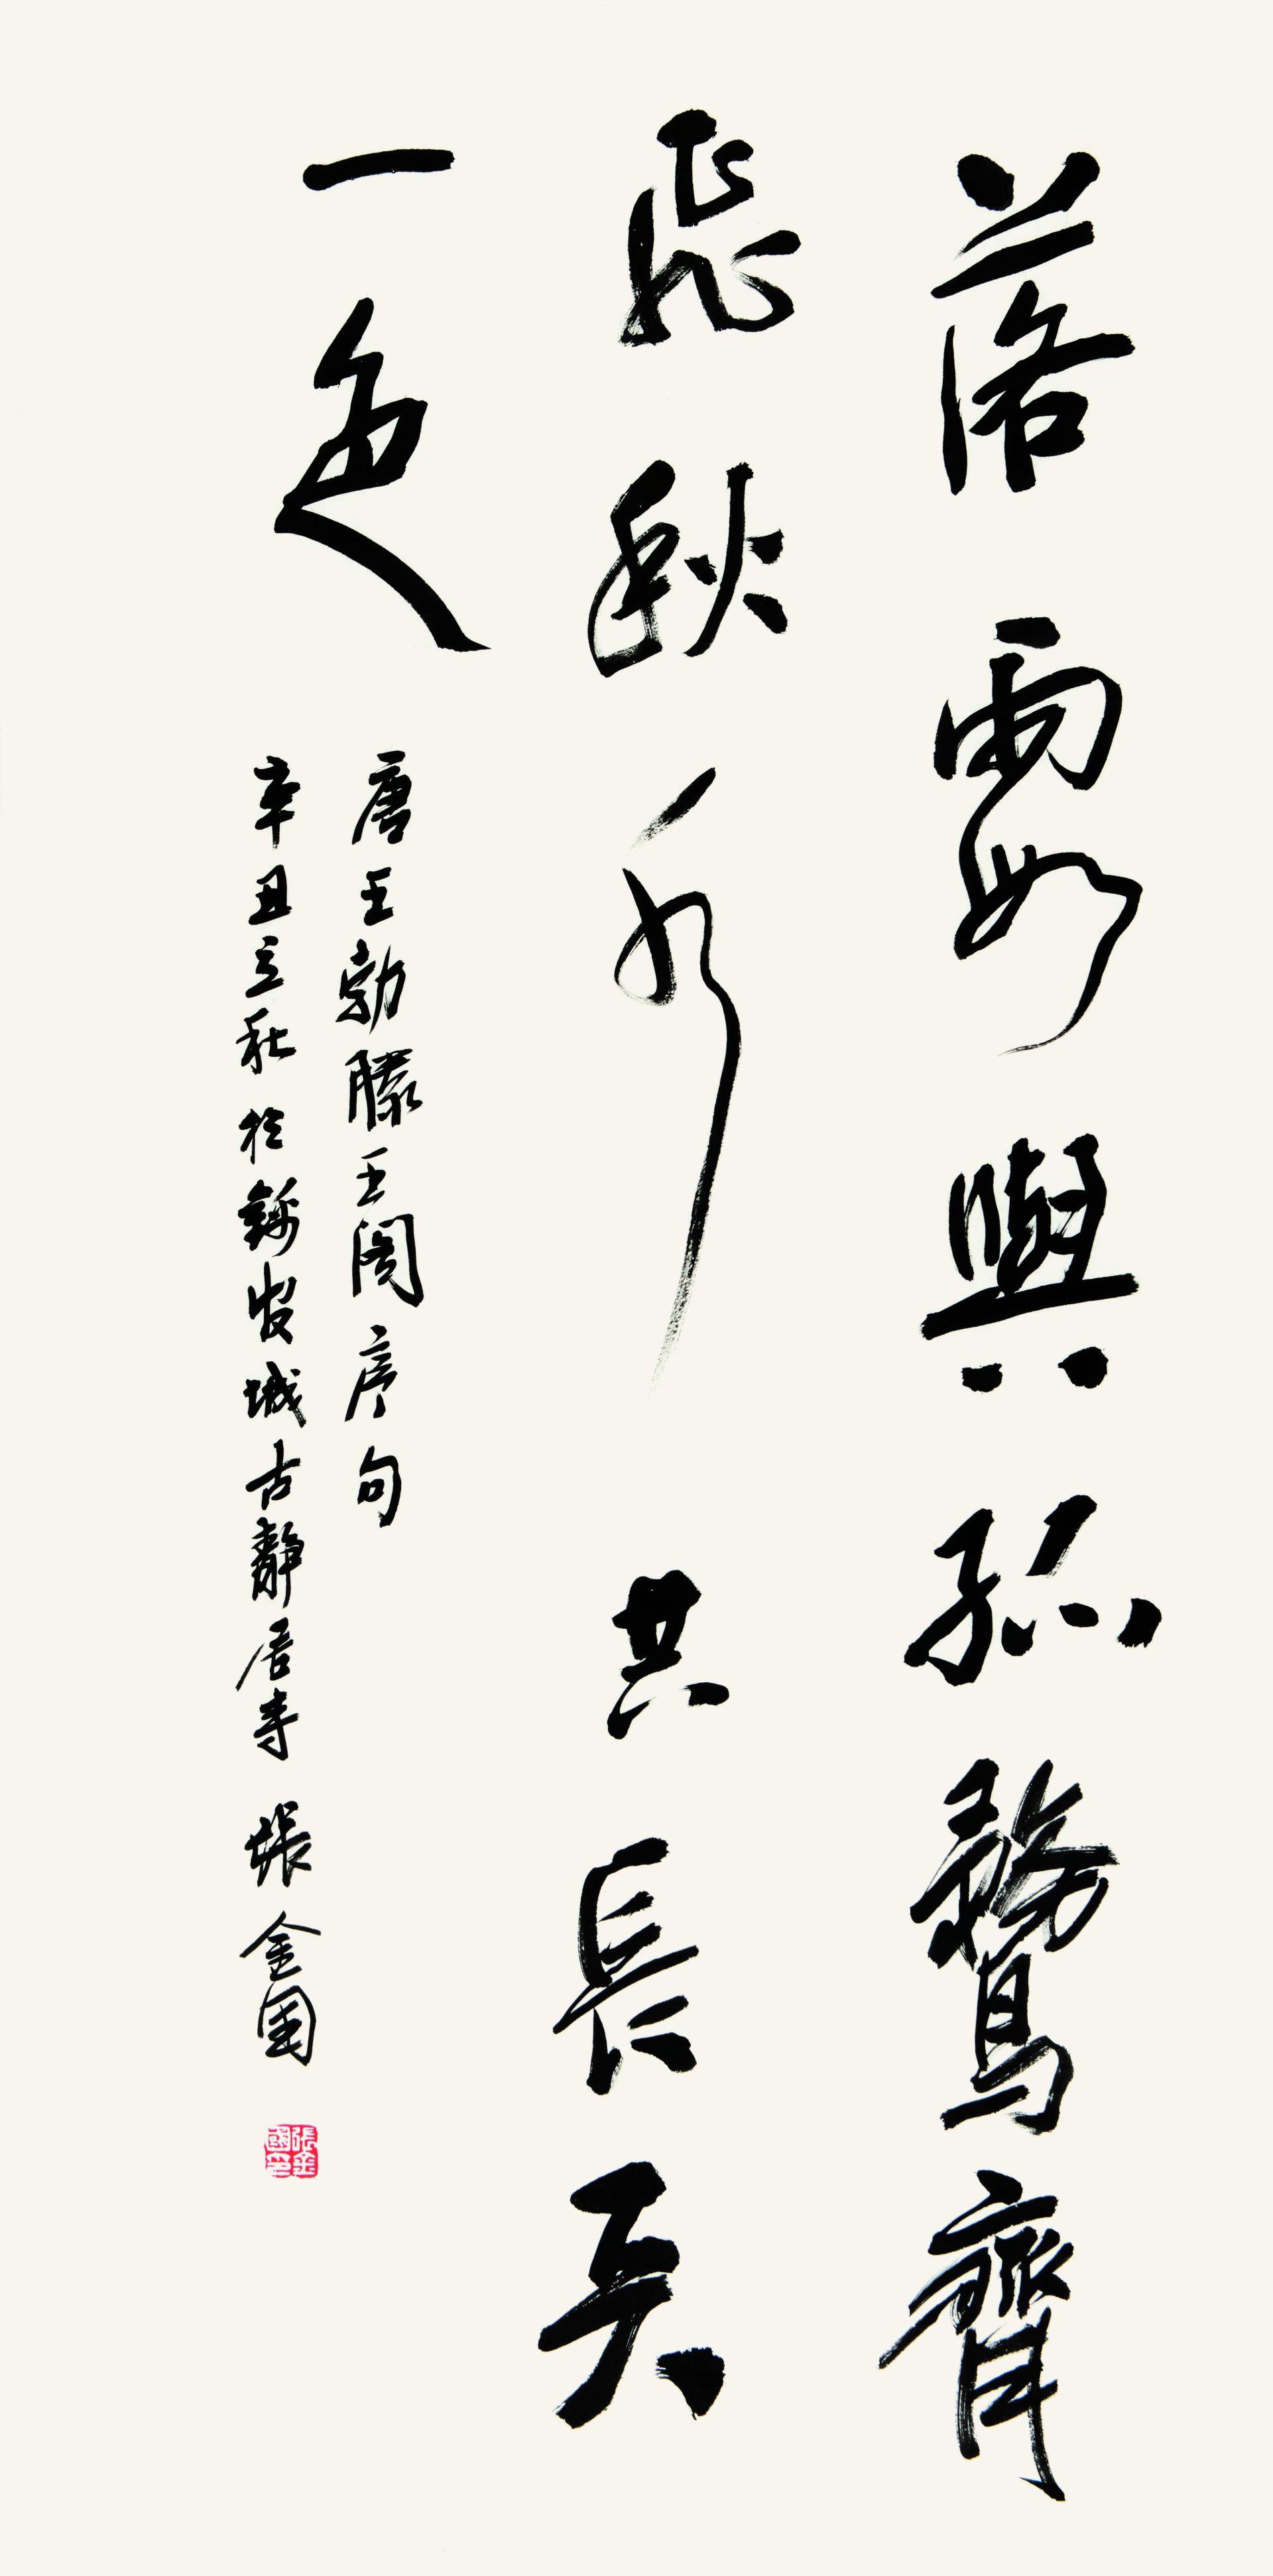 落霞與孤鶩齊
飛秋水共長天
一色
唐王勃滕王閣序句
辛丑立秋於錦官城古靜居寺 張金国
張金國印